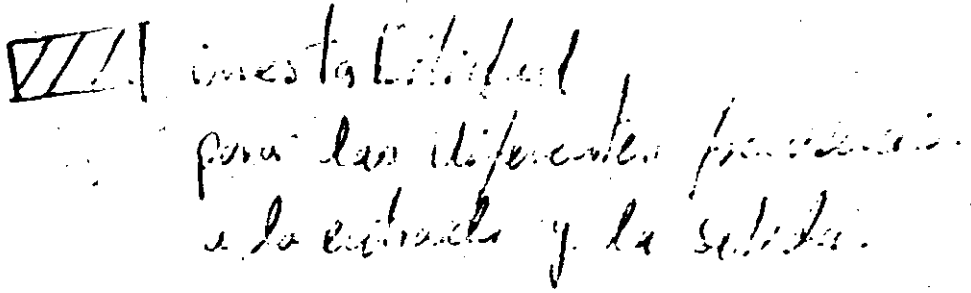 inestabilidad
para las diferentes frecuencias
a la entrada y la salida.